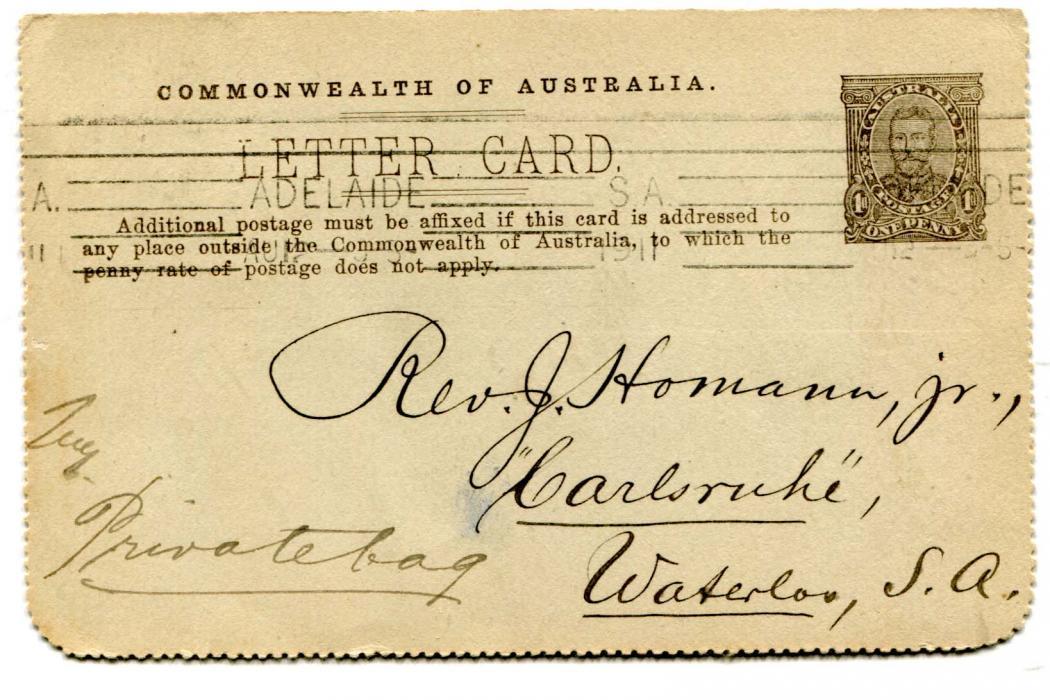 COMMONWEALTH OF AUSTRALIA.
AUSTRALIA
LETTER CARD.
A. ADELAIDE S.A. DE
POSTAGE
1D 1D
ONE PENNY
Additional postage must be affixed if this card is addressed to
any place outside the Commonwealth of Australia, to which the
penny rate of postage does not apply.
1911
Rev. J. Homann, jr.,
"Carlsruhe",
Privatebag
Waterloo, S. A.